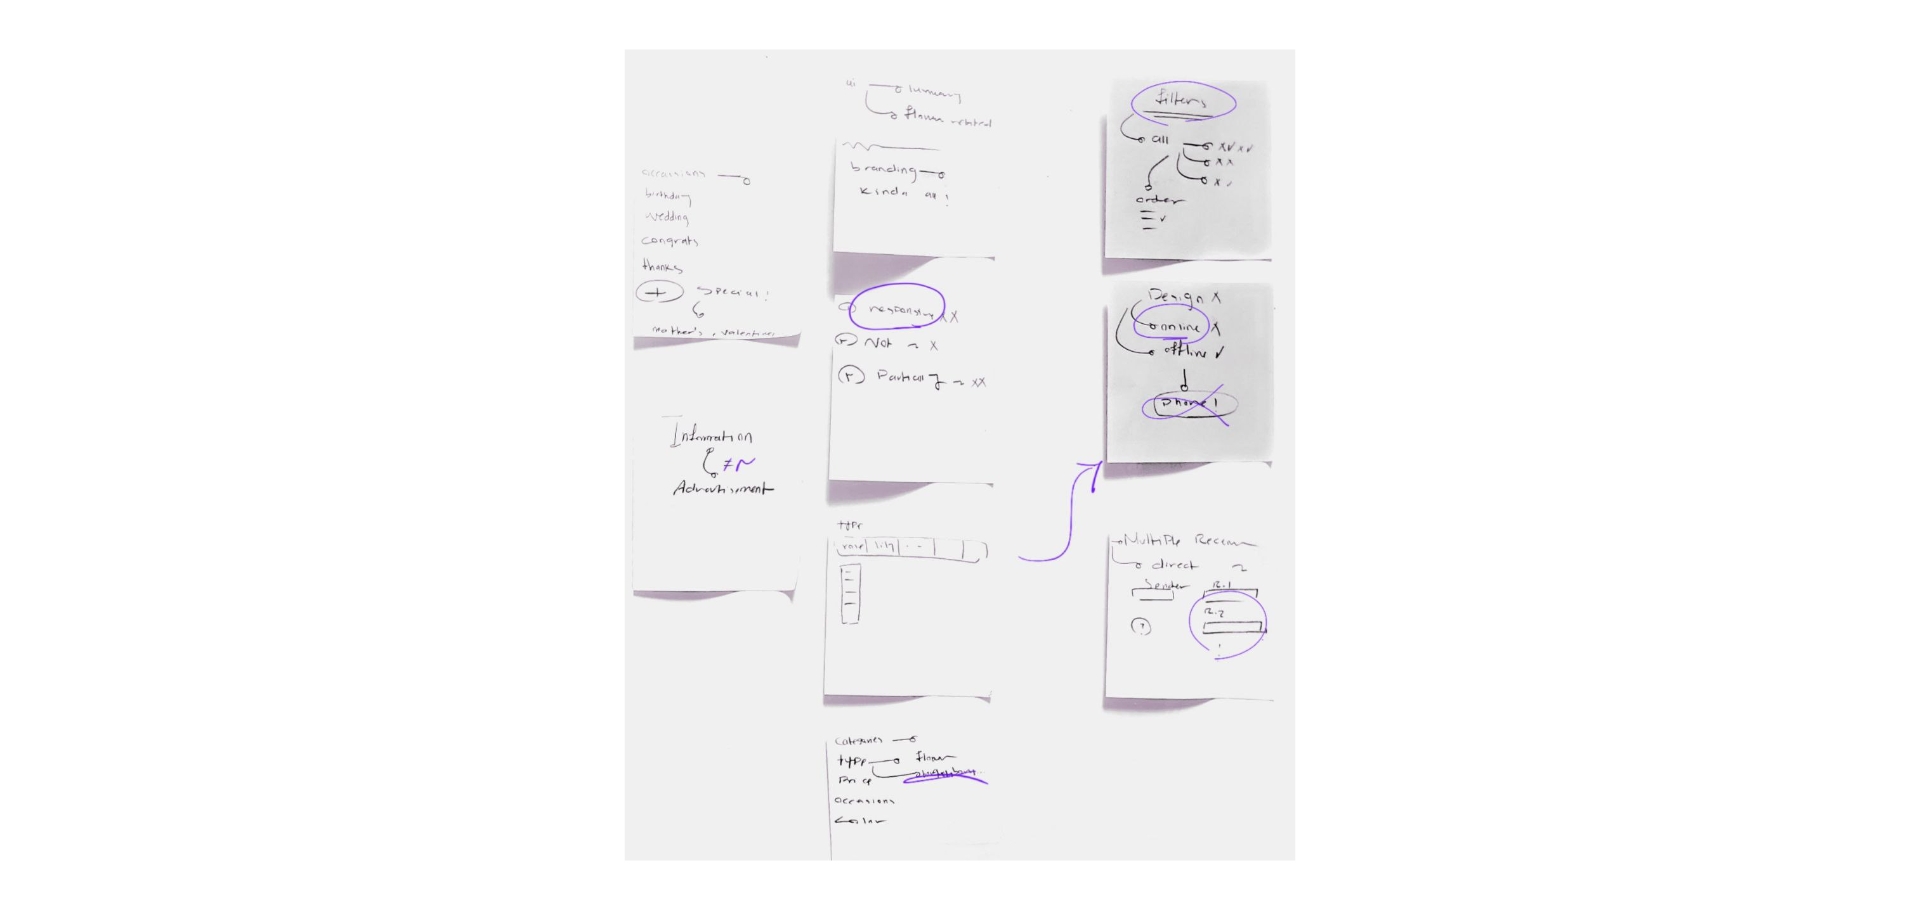 occassions
birthday
wedding
congrats
thanks
+ special!
mother's, valentines
Information
≠
Advertisement
ui
luxury
flower
branding
kinda
responsive XX
Not ~ X
Partially ~ XX
type
rose lily
Categories
type flower
Price
occasions
color
filters
all
order
Design X
online X
offline ✓
phone!
Multiple
direct
Sender R.1
R.2